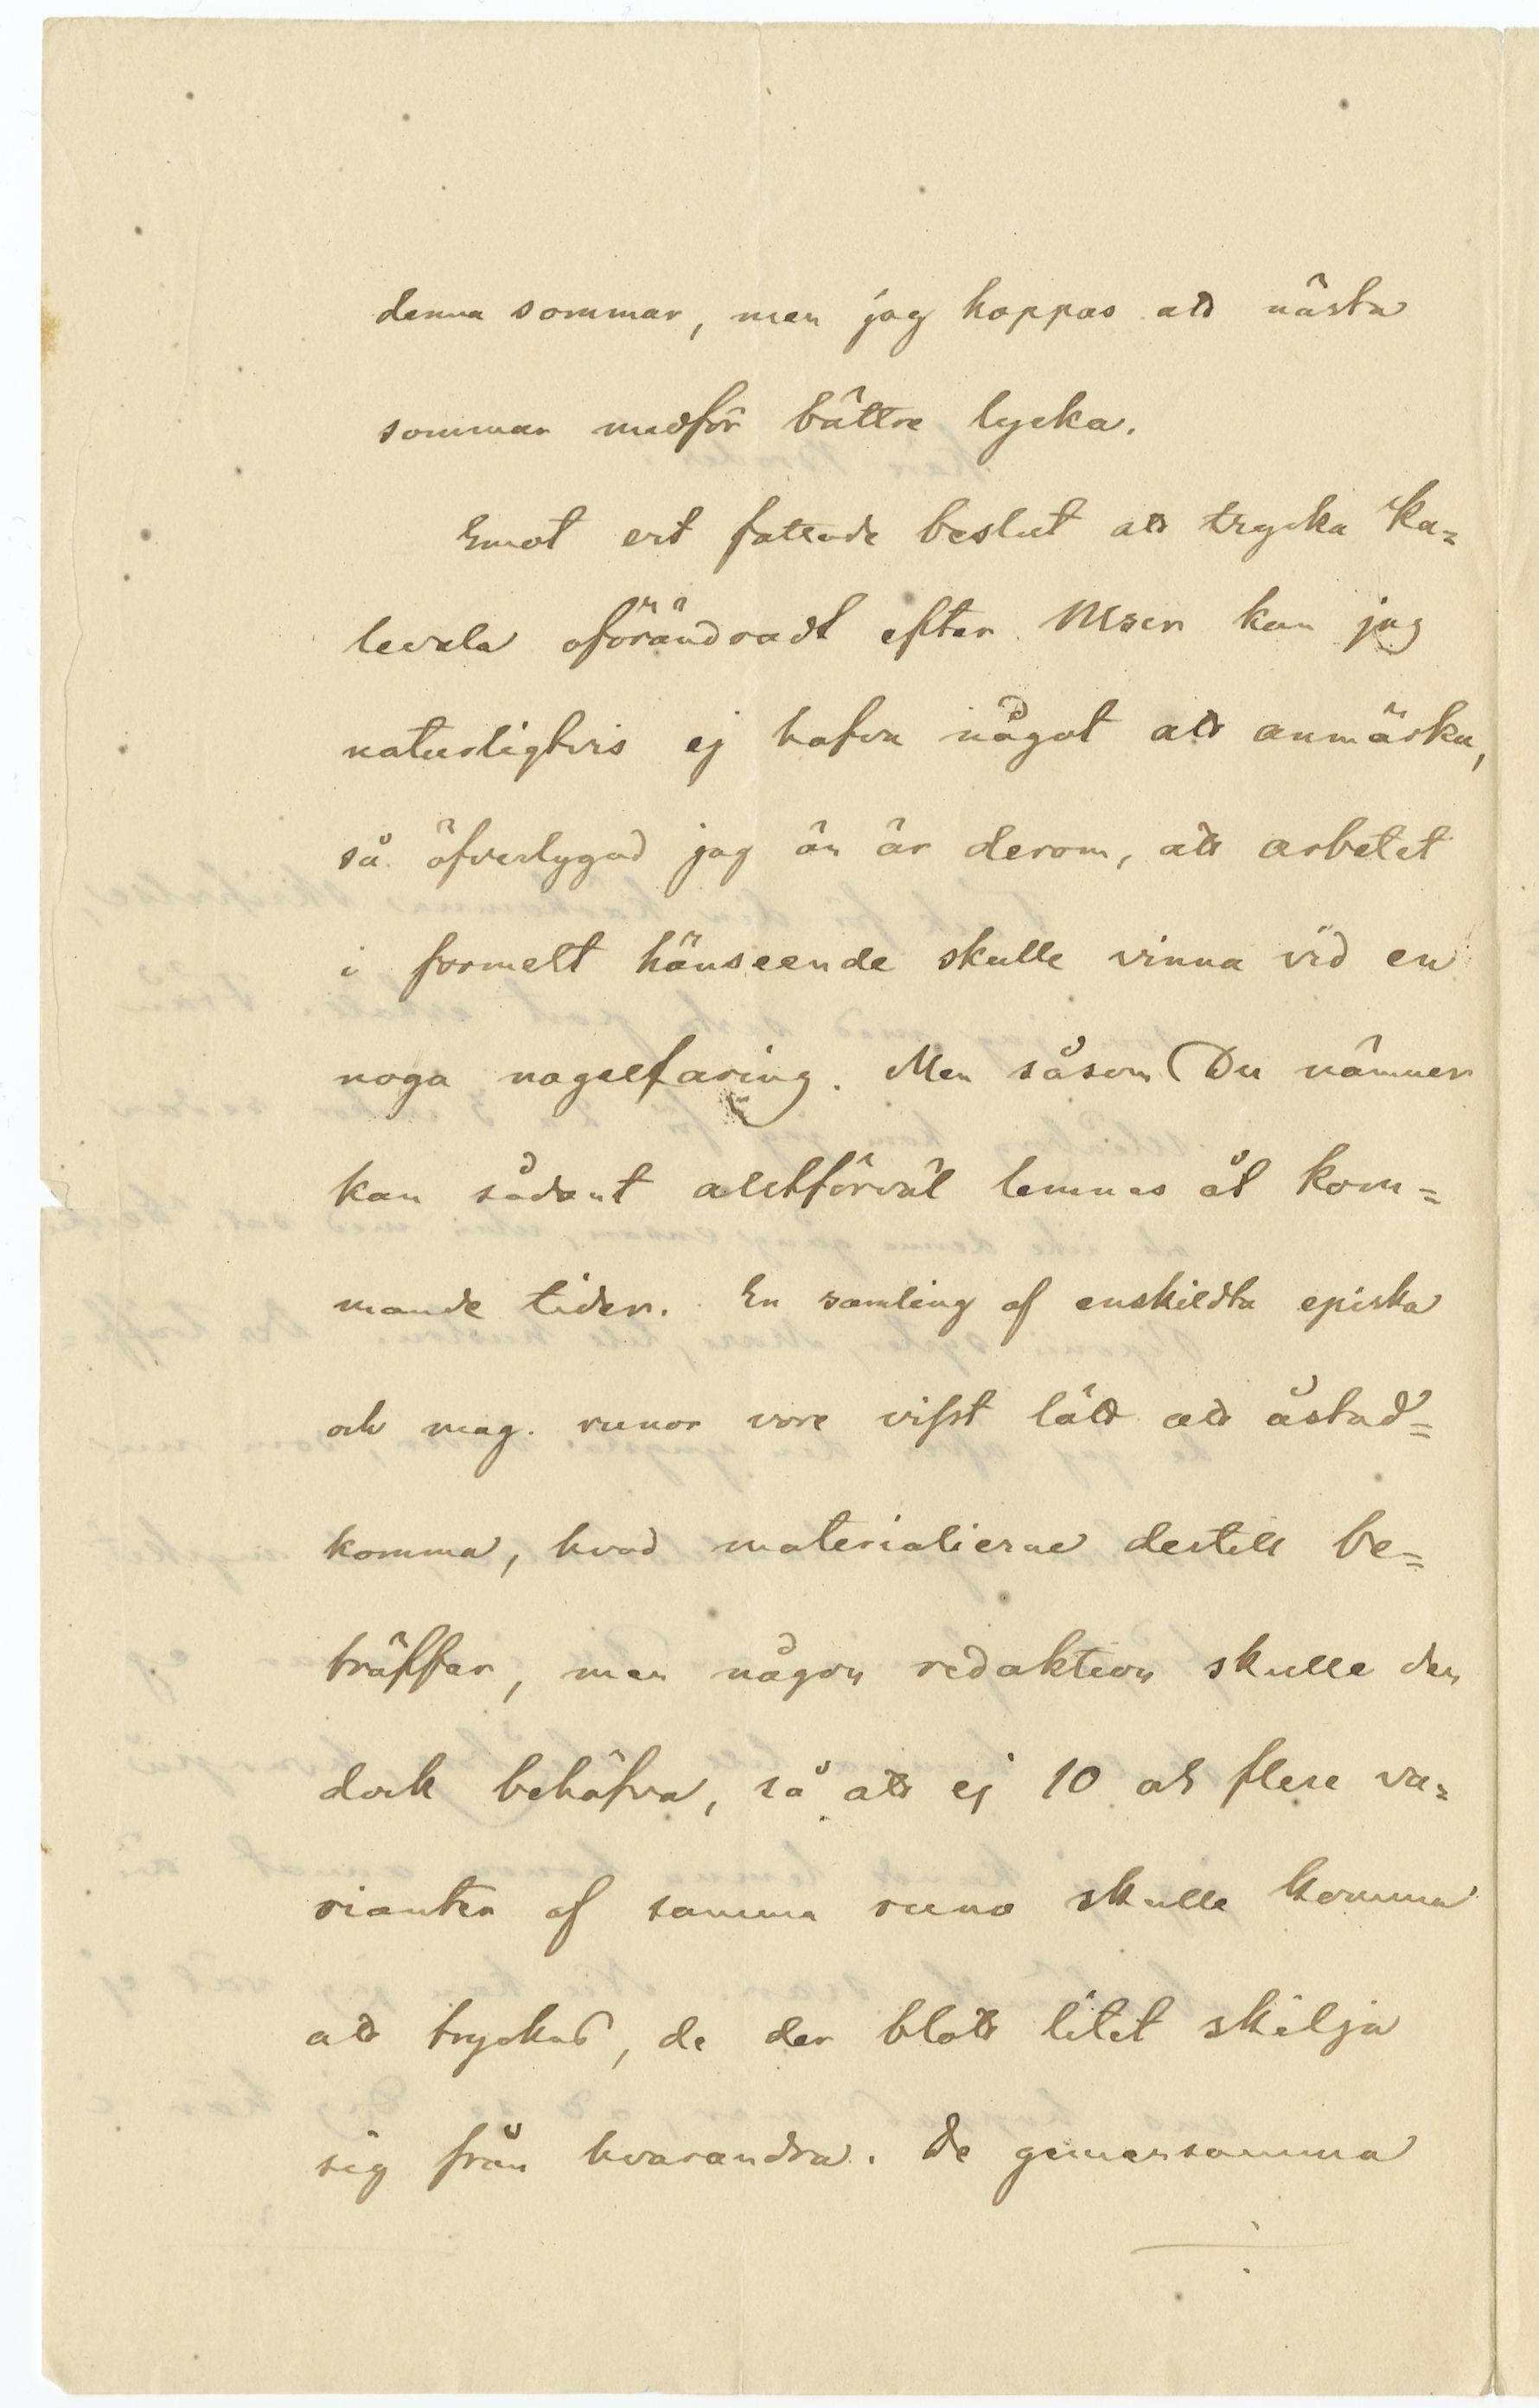 denna sommar, men jag hoppas att nästa
sommar medför bättre lycka.
Emot ert fattade beslut att trycka Ka=
levala oförändradt efter Mscr kan jag
naturligtvis ej hafva något att anmärka,
så öfvertygad jag än är derom, att arbetet
i formelt hänseende skulle vinna vid en
noga nagelfaring. Men såsom Du nämner
kan sådant alltförväl lemnas åt kom=
mande tider. En samling af enskildta episka
och mag. runor vore visst lätt att åstad=
komma, hvad materialierne dertill be=
träffar, men någon redaktion skulle den
dock behöfva, så att ej 10 och flere va=
rianter af samma runa skulle komma
att tryckas, de der blott litet skilja
sig från hvarandra. De gemensamma